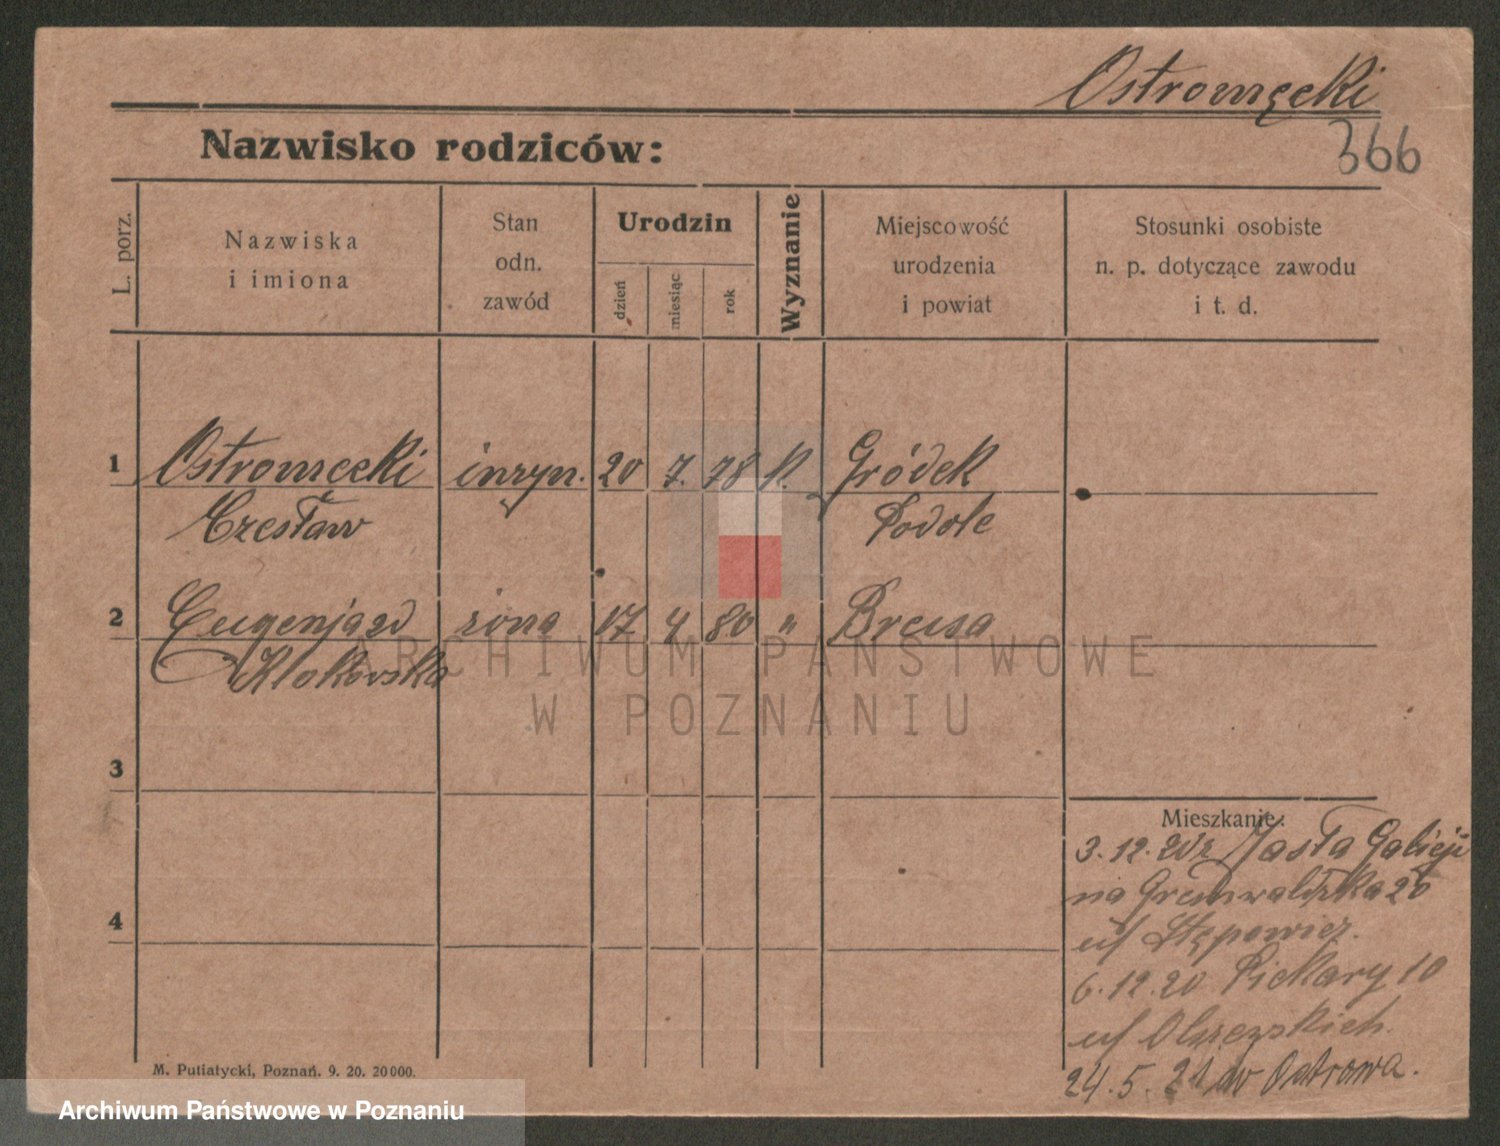 Ostromęcki
366
Nazwisko rodziców:
L. porz.
Nazwiska
i imiona
Stan
odn.
zawód
Urodzin
dzień
miesiąc
rok
Wyznanie
Miejscowość
urodzenia
i powiat
Stosunki osobiste
n. p. dotyczące zawodu
i t. d.
1 Ostromecki inżyn. 20 7. 78 k. Gródek
Czesław Podole
2 Eugenja zd żona 17 4 80 "
Klokowska
3
4
Mieszkanie:
3.12.20 z Jasła Galicji
na Grunwaldzka 20
u Stępowicz.
6.12.20 Piekary 10
u Olszezskich
24.5.21 do Ostrowa.
M. Putiatycki, Poznań. 9. 20. 20000.
ARCHIWUM PAŃSTWOWE
W POZNANIU
Archiwum Państwowe w Poznaniu